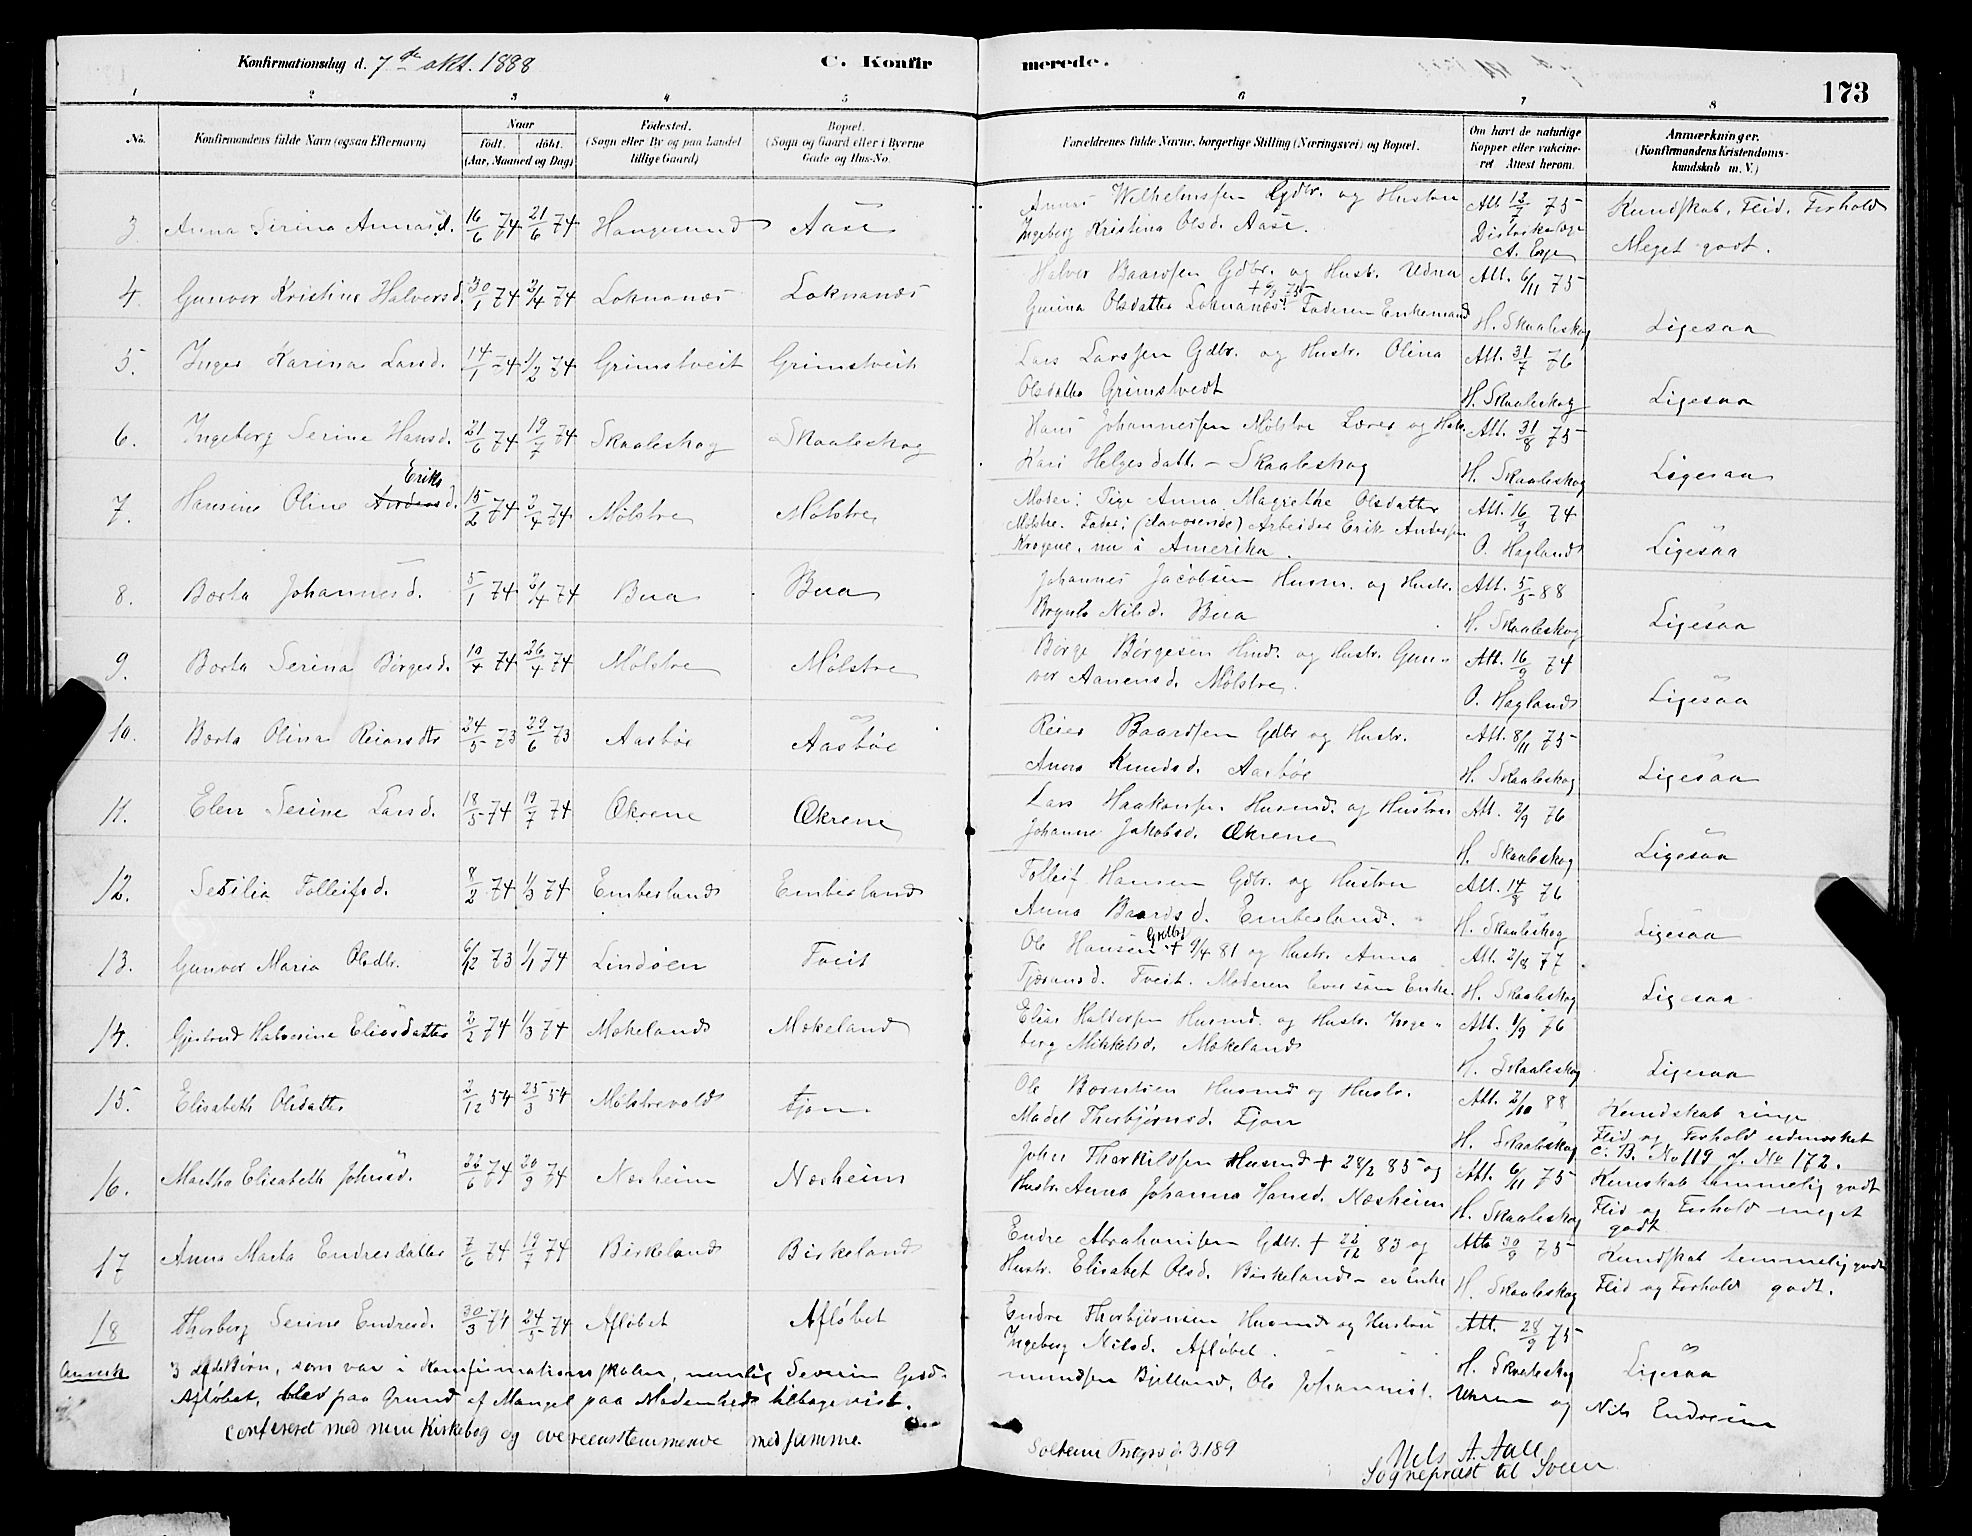 Konfirmationsdag d. 7de okt. 1888
C. Konfirmerede.
173
1 2 3 4 5 6 7 8
No.
Konfirmandens fulde Navn (ogsaa Efternavn)
Naar
født. døbt.
(Aar, Maaned og Dag)
Fødested.
(Sogn eller By og paa Landet
tillige Gaard)
Bopæl.
(Sogn og Gaard eller i Byerne
Gade og Hus-No.
Forældrenes fulde Navne, borgerlige Stilling (Næringsvei) og Bopæl.
Om havt de naturlige
Kopper eller vakcine-
ret Attest herom.
Anmærkninger.
(Konfirmandens Kristendoms-
kundskab m. V.)
3 Anna Serina Annasd. 16/6 74 21/6 74 Haugesund Aase
Annas Wilhelmssen Gdbr. og Hustru
Ingeborg Kristina Olsd. Aase.
Att. 12/7 75
Kundskab, Flid, Forhold
Meget godt.
4 Gunvor Kristine Halversd. 30/1 74 2/4 74 Loknanæs Loknanæs
Halvor Baardsen Gdbr. og Hustr. Udna
Gurina Olsdatter Loknanæs. Faderen Enkemand
Att. 6/11 75
H. Skaaleskog
Ligesaa
5. Inger Karina Larsd. 14/1 74 1/2 74 Grimstveit Grimstveit
Lars Larssen Gdbr. og Hustr. Olina
Olsdatter Grimstvedt
Att. 31/7 76
H. Skaaleskog
Ligesaa
6. Ingeborg Serine Hansd. 21/6 74 19/7 74 Skaaleskog Skaaleskog
Hans Johannessen Mølstre Lærer og Hstr.
Kari Helgesdatt. – Skaaleskog
Att. 31/8 75
H. Skaaleskog
Ligesaa
7. Hansine Oline Eriksd. 15/2 74 3/4 74 Mølstre Mølstre
Moder: Pige Anna Magrethe Olsdatter
Mølstre. Fader: (daværende) Arbeider Erik Andersen
Krogene, nu i Amerika.
Att. 16/9 74
O. Hagland
Ligesaa
8. Borta Johannesd. 5/1 74 3/4 74 Bua Bua
Johannes Jacobsen Husm. og Hustr.
Nilsd. Bua
Att. 5/5 88
H. Skaaleskog
Ligesaa
9. Borta Serina Børgesd. 10/4 74 26/4 74 Mølstre Mølstre
Børge Børgesen Hmd. og Hustr. Gun-
vor Aanensd. Mølstre.
Att. 16/9 74
O. Hagland
Ligesaa
10. Borta Olina Reiarsdtr 24/5 73 29/6 73 Aasbøe Aasbøe
Reier Baardsen Gdbr og Hustr.
Anna Knudsd. Aasbøe
Att. 8/11 75
H. Skaaleskog
Ligesaa
11. Elen Serine Larsd. 18/5 74 19/7 74 Økrene Økrene
Lars Haakonsen Husmd. og Hustru
Johanne Jakobsd. Økrene
Att. 2/9 76
H. Skaaleskog
Ligesaa
12. Sesilia Tolleifsd. 8/2 74 1/3 74 Emberland Emberland
Tolleif Hansen Gdbr. og Hustru
Anna Baardsd. Emberland.
Att. 14/8 76
H. Skaaleskog
Ligesaa
13. Gunvor Maria Olsdtr. 6/12 73 1/1 74 Lindøen Tveit
Ole Hansen Gdbr † 9/4 81 og Hustr. Anna
Tjøransd. Tveit. Moderen lever som Enke.
Att. 2/8 77
H. Skaaleskog
Ligesaa
14. Gjertrud Halvorine Eliasdatter 2/2 74 1/3 74 Mokeland Mokeland
Elias Haldorsen Husmd. og Hustr. Inge-
borg Mikkelsd. Mokeland
Att. 1/9 76
H. Skaaleskog
Ligesaa
15. Elisabeth Olsdatter 2/12 54 25/3 54 Mølstrevold Fjon.
Ole Bærntsen Husmd og Hustr.
Madel Thorbjørnsd. Fjon
Att. 2/10 88
H. Skaaleskog
Kundskab ringe
Flid og Forhold udmærket
C. B. No 119 No 172.
16. Martha Elisabeth Johnsd. 22/6 74 20/9 74 Norheim Norheim
John Thorkildsen Husmd † 28/2 85 og
Hustr. Anna Johanna Hansd. Norheim
Att. 6/11 75
H. Skaaleskog
Kunskab temmelig godt
Flid og Forhold meget
godt
17 Anna Marta Endresdatter 7/6 74 19/7 74 Birkeland Birkeland
Endre Abrahamsen Gdbr. † 22/12 83 og
Hustr. Elisabet Olsd. Birkeland – er Enke
Att. 30/9 75
H. Skaaleskog
Kundskab temmelig godt
Flid og Forhold godt.
18 Thorborg Serine Endresd. 30/3 74 24/5 74 Afløbet Afløbet
Endre Thorbjørnsen Husmd og Hustru
Ingeborg Nilsd. Afløbet.
Att. 28/9 75
H. Skaaleskog
Ligesaa
Anmrk 3 Børn, som var i Konfirmationsskolen, nemlig Severin Gud-
mundsen Bjelland, Ole Johannisl. og Nils Endresen
Afløbet, blev paa Grund af Mangel paa Modenhed tilbagevist.
Confereret med min Kirkebog og overeensstemmende med samme.
Solheim 3.189
Nils A. Aall
Sognepræst til Sveen